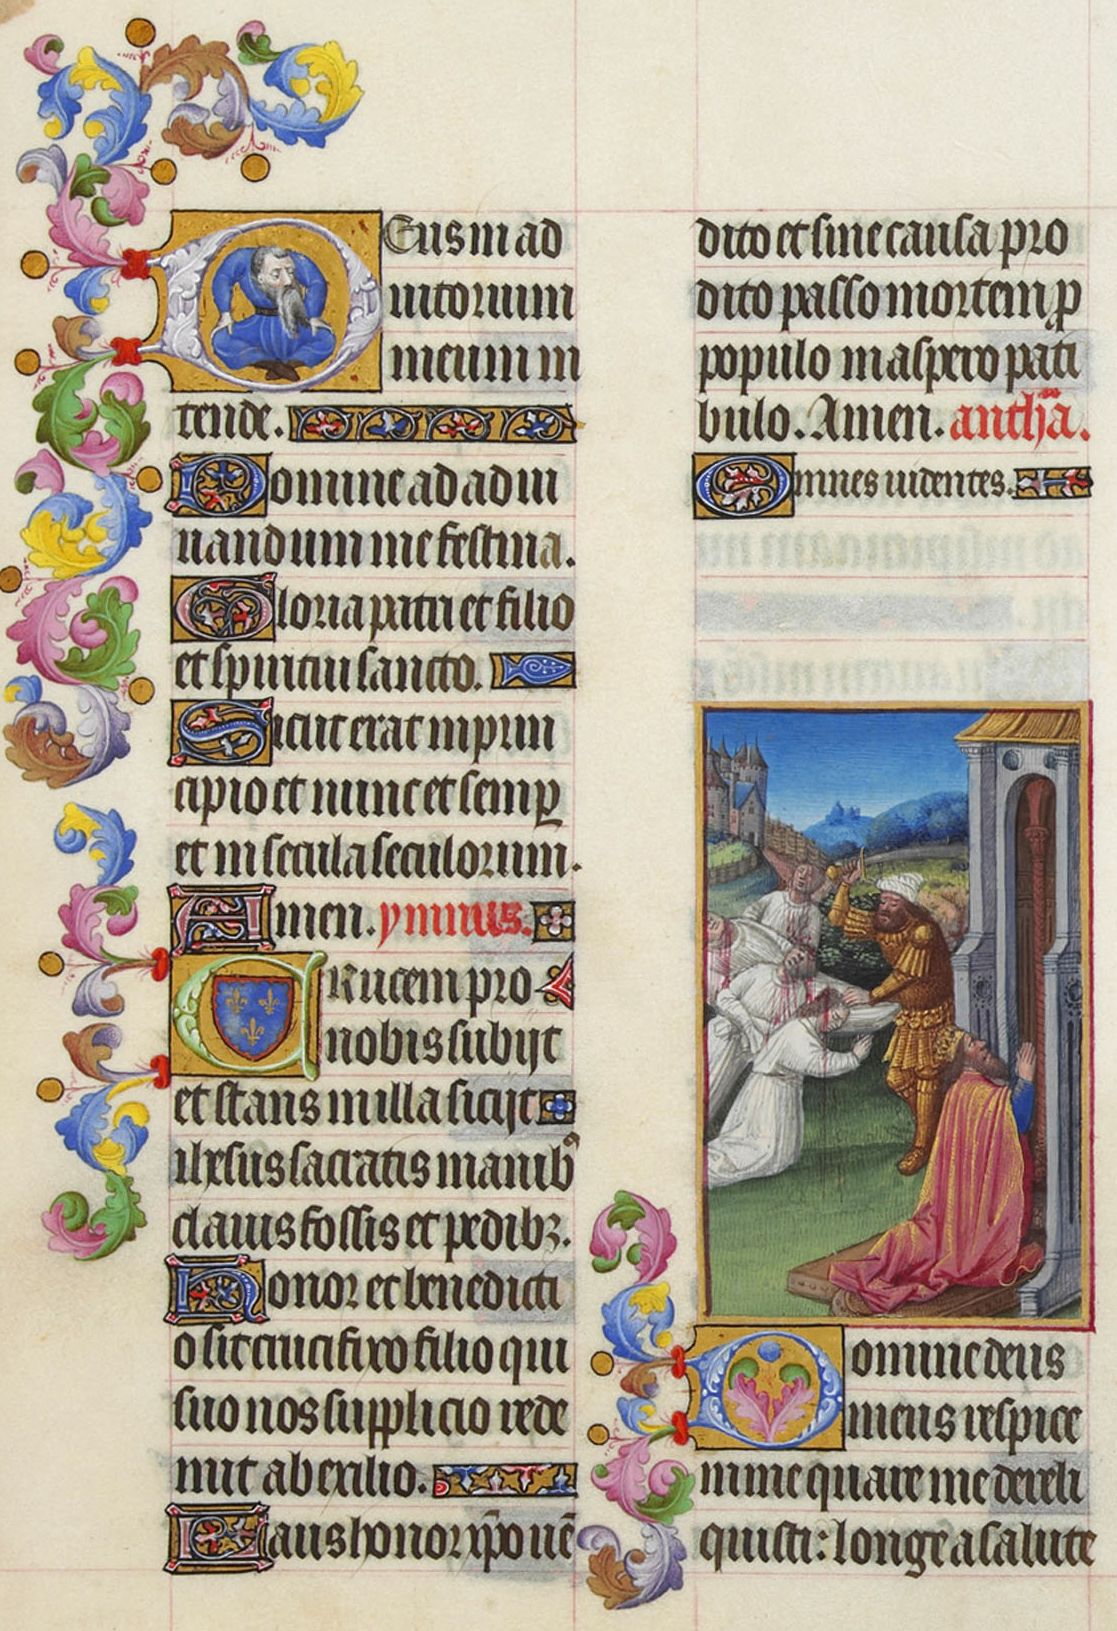 Deus in ad
iutorium
meum in
tende.
Domine ad adiu
uandum me festina.
Gloria patri et filio
et spiritui sancto.
Sicut erat in prin
cipio et nunc et semp
et in secula seculorum.
Amen. ymnus.
Crucem pro
nobis subijt
et stans in illa sicijt
ihesus sacratis manibꝰ
clauis fossis et pedibꝫ.
Honor et benedicti
o sit crucifixo filio qui
suo nos supplicio rede
mit ab exilio.
Laus honor xp̄o uē
dito et sine causa pro
dito passo mortem ꝑ
populo in aspero pati
bulo. Amen. anthā.
Omnes uidentes.
Domine deus
meus respice
in me quare me dereli
quisti: longe a salute